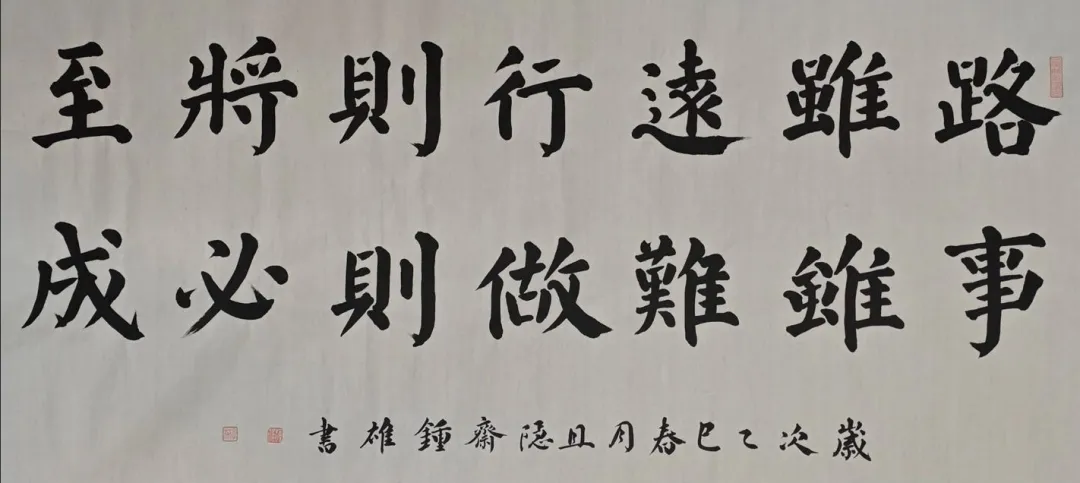 路雖遠行則將至
事雖難做則必成
歲次乙巳春月且隱齋鍾雄書